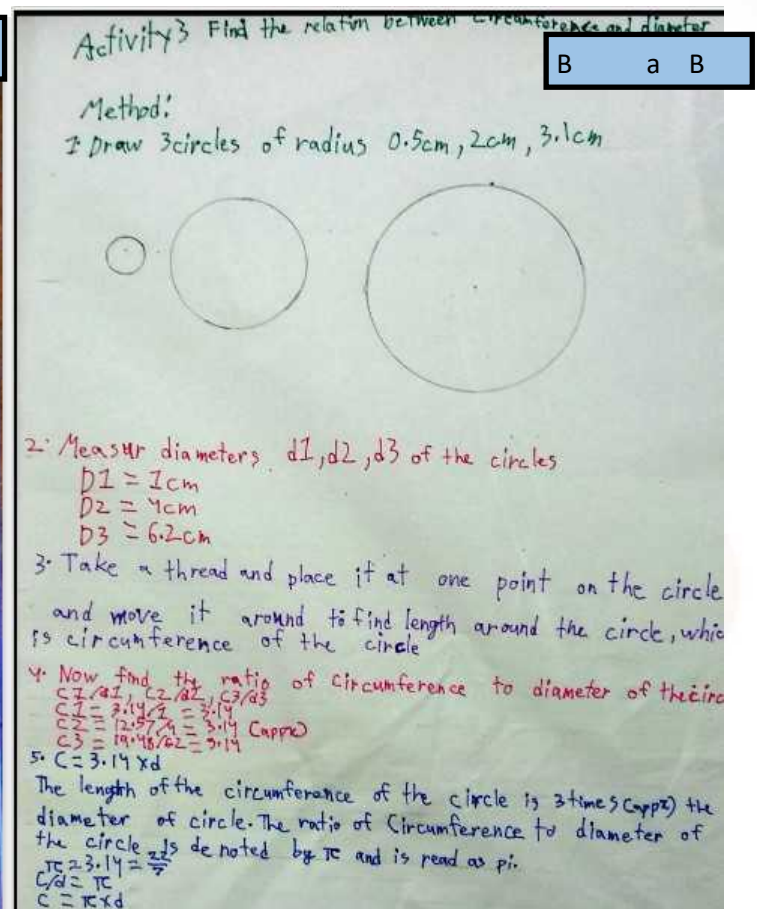 Activity 3 Find the relation between Circumference and diameter
B a B
Method:
1 Draw 3circles of radius 0.5cm, 2cm, 3.1cm
2. Measur diameters d1,d2,d3 of the circles
D1 = 1cm
D2 = 4cm
D3 = 6.2cm
3. Take a thread and place it at one point on the circle
and move it around to find length around the circle, whic
is circumference of the circle
4. Now find the ratio of Circumference to diameter of thecirc
C1/d1, C2/d2, C3/d3
C1 = 3.14/1 = 3.14
C2 = 12.57/4 = 3.14 (appx)
C3 = 19.48/62 = 3.14
5. C = 3.14 xd
The length of the circumference of the circle is 3times (appx) the
diameter of circle. The ratio of Circumference to diameter of
the circle is denoted by π and is read as pi.
π = 3.14 = 22/7
C/d = π
C = π x d